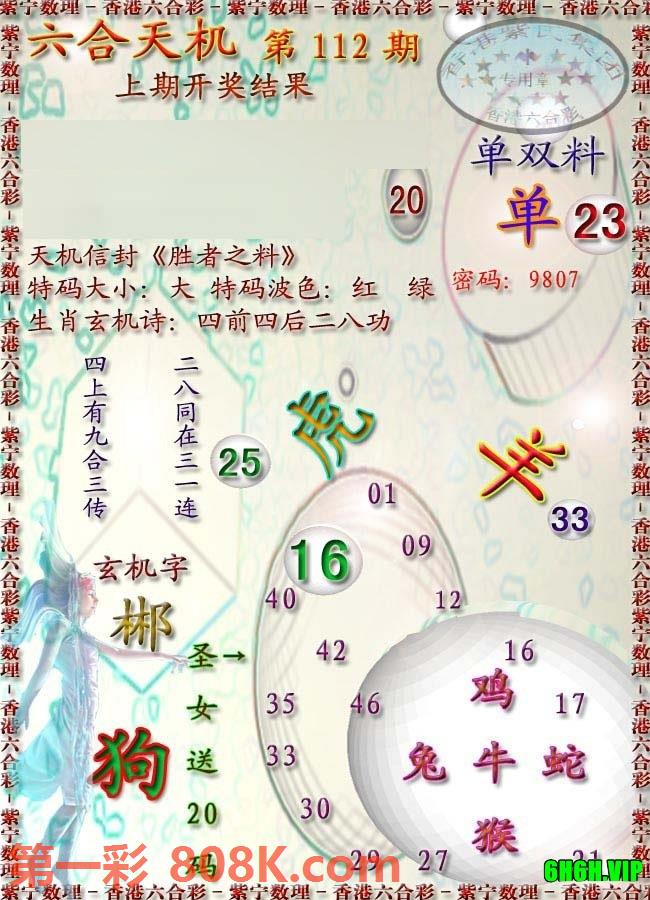 紫宁数理－香港六合彩－紫宁数理－香港六合彩－紫宁数理－香港六合彩
六合天机 第 112 期
上期开奖结果
专用章
香港六合彩
单双料
单 23
20
天机信封《胜者之料》
特码大小：大 特码波色：红 绿
密码：9807
生肖玄机诗：四前四后二八功
四上有九合三传
二八同在三一连
25
虎
羊
33
01
09
16
40
12
42
16
35
46
17
33
30
29
27
21
鸡
兔 牛 蛇
猴
玄机字
郴
圣→
女
送
20
码
狗
第一彩 808K.com
6H6H.VIP
紫宁数理－香港六合彩－紫宁数理－香港六合彩－紫宁数理－香港六合彩